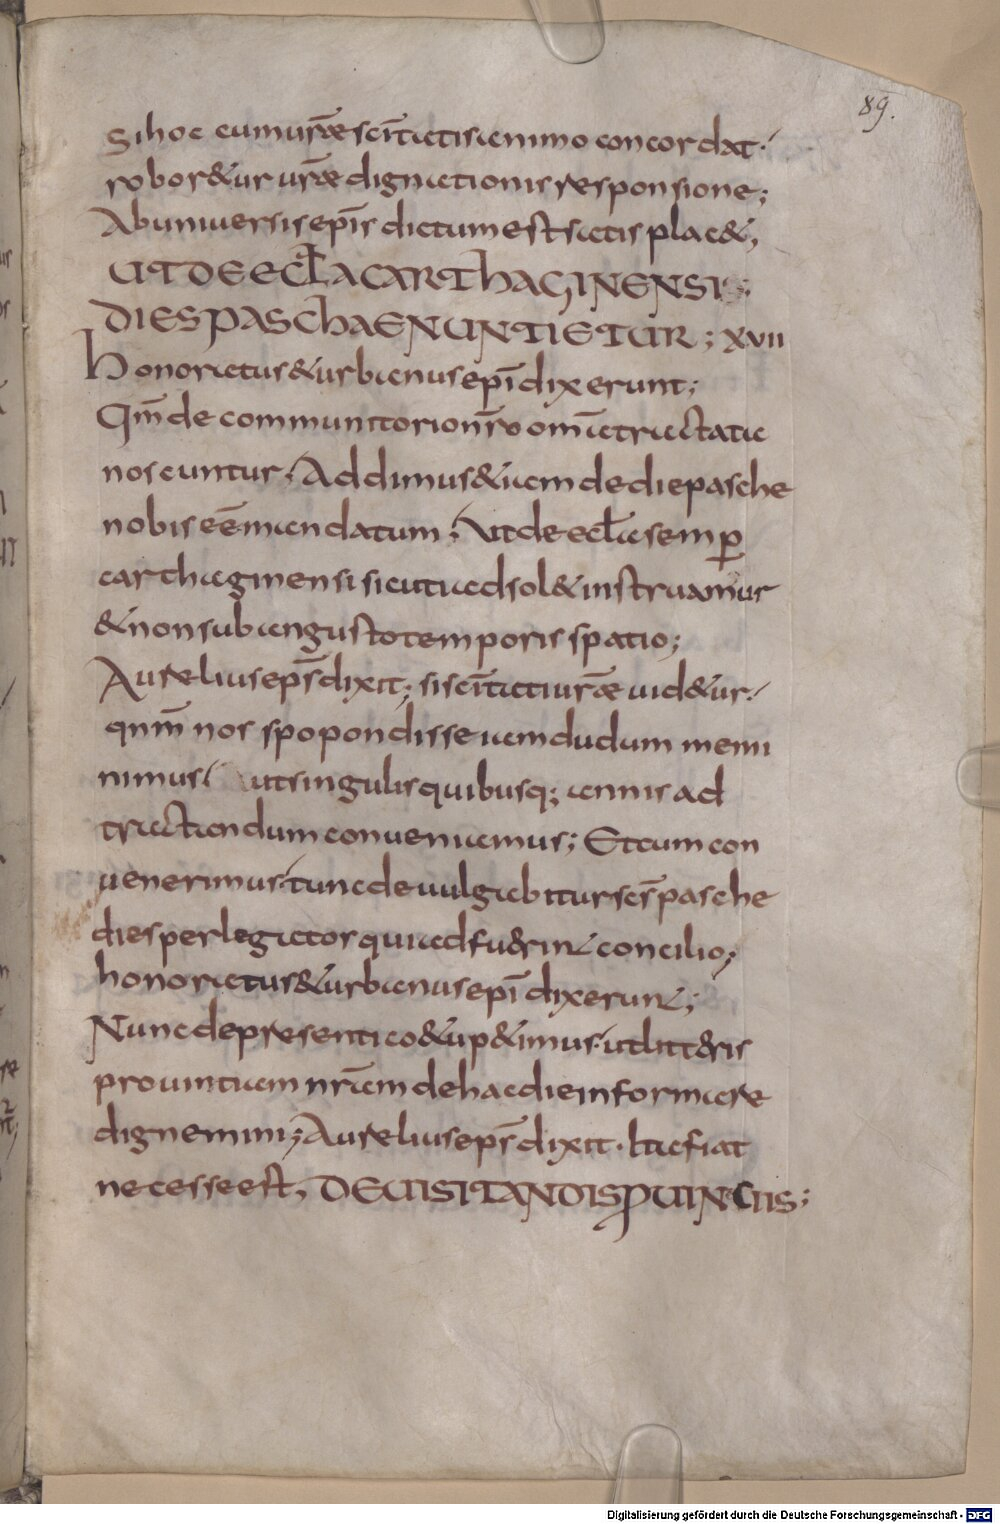 89.
Si hoc cum urae scitatis animo concordat·
robor&ur urae dignationis responsione;
Ab universis epis dictum est satis plac&;
UT DE ECLA CARTHAGINENSI
DIES PASCHAE NUNTIETUR; XVII
Honoratus & urbanus epi dixerunt;
Qm de communitorio nro omia tractata
noscuntur· Addimus & iam de die pasche
nobis ee mandatum; Ut de ecla semp
carthaginensi sicuti ad sol& instruamur
& non sub angusto temporis spatio;
Aurelius eps dixit; si scitati urae uid&ur·
qnm nos spopondisse iamdudum memi
nimus· ut singulis quibusq; annis ad
tractandum conveniamus; Et cum con
venerimus· tunc devulgabitur scs pasche
dies per legator qui adfuerint concilio;
honoratus & urbanus epi dixerunt;
Nunc de presenti co&u p&imus· ut litt&ris
provintiam nram de hac die informare
dignemini; Aurelius eps dixit· Ita fiat
necesse est; DE VISITANDIS PVINCIIS;
Digitalisierung gefördert durch die Deutsche Forschungsgemeinschaft - DFG